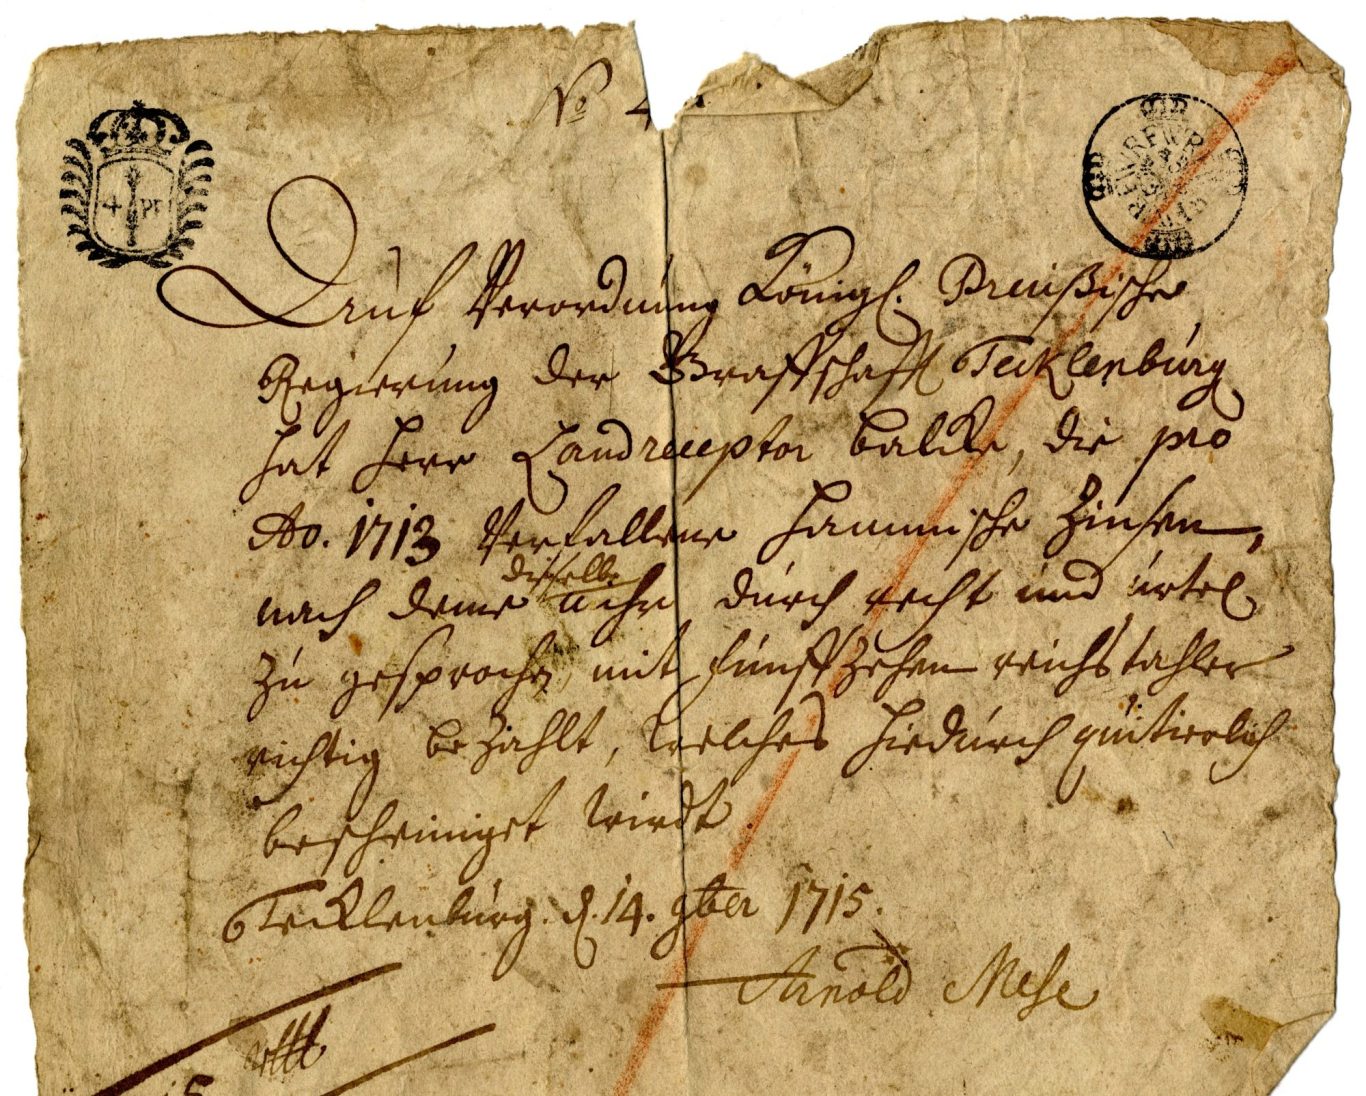 No 4
4 PF
FWR
Auf Verordnung Königl. Preußische
Regierung der Graffschafft Tecklenburg
hat Herr Landreceptor Balcke, die pro
Ao. 1713 Verfallene Hammische Zinsen,
nach deme
disselbe
durch recht und urtel
zu gesprochen, mit funffzehen reichstahler
richtig bezahlt, welches hiedurch quitierlich
bescheiniget wirdt.
Tecklenburg. d. 14. 9ber 1715.
Arnold Mese